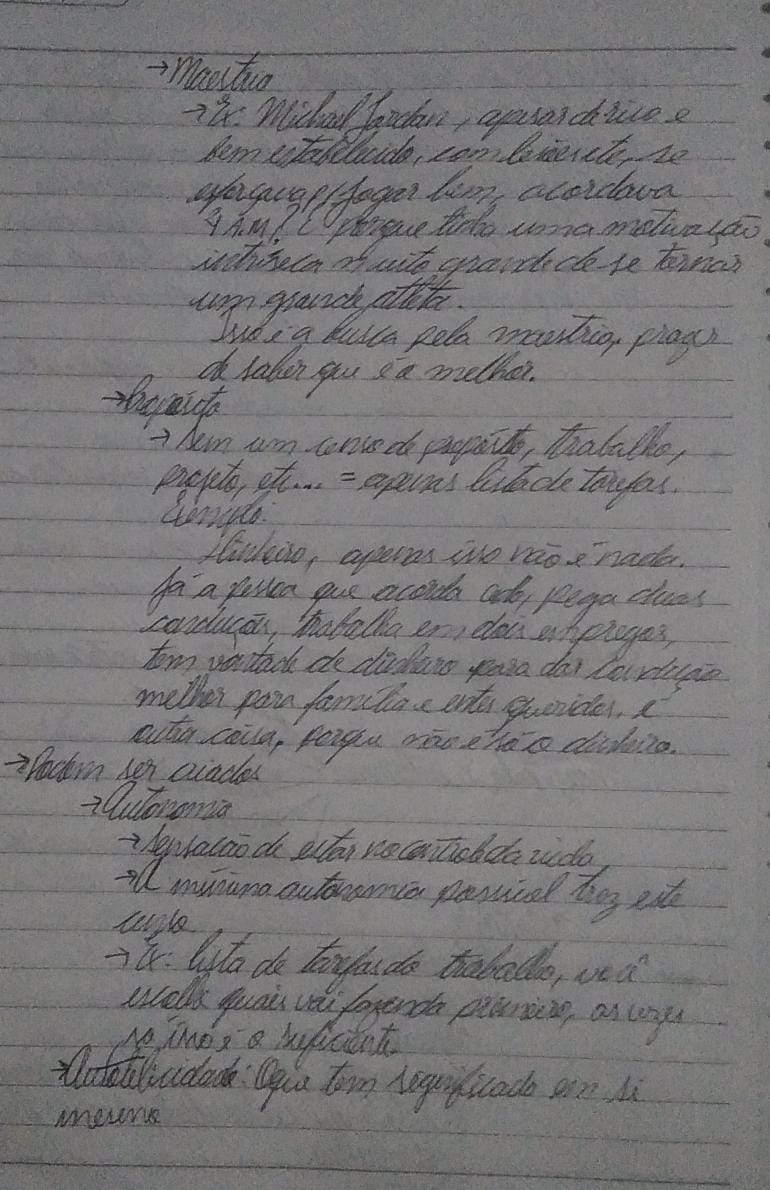 →Maestria
→Ex: Michael Jordan, apesar de rico e
bem estabelecido, com se
esforçava p/ jogar bem, acordava
4 A.M.? É porque tinha uma motivação
intríseca muito grande de se tornar
um grande atleta.
Isso é a busca pela maestria, prazer
de saber que é o melhor.
→Propósito
→ Sem um censo de propósito, trabalho,
projeto, etc... = apenas lista de tarefas.
Exemplo:
Dinheiro, apenas isso não é nada.
Já a pessoa que acorda cedo, pega duas
conduções, trabalha em dois empregos,
tem vontade de dinheiro para dar condução
melhor para família e entes queridos, é
outra coisa, porque não é só o dinheiro.
→Podem ser criados
→Autonomia
→Sensação de estar no controle da vida
→A mínima autonomia possível traz este
censo
→Ex: lista de tarefas do trabalho, você
escolhe quais vai fazendo primeiro, as vezes
so isso é o suficiente.
→Autotelicidade: O que tem significado em si
mesmo